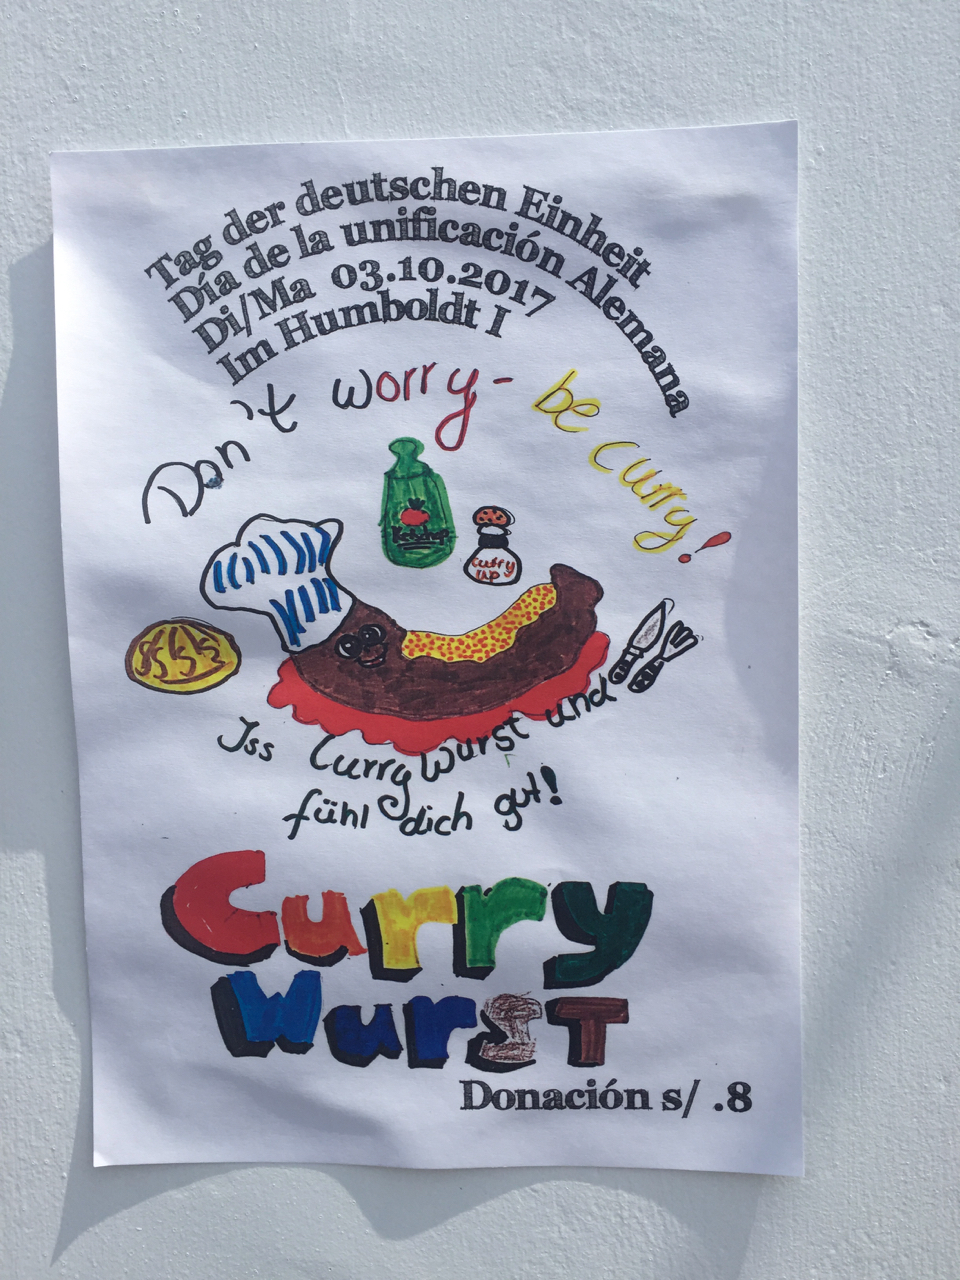 Tag der deutschen Einheit
Día de la unificación Alemana
Di/Ma 03.10.2017
Im Humboldt I
Don't worry - be curry!
Ketchup
curry
Iss Curry Wurst und
fühl dich gut!
Curry
WurST
Donación s/ .8